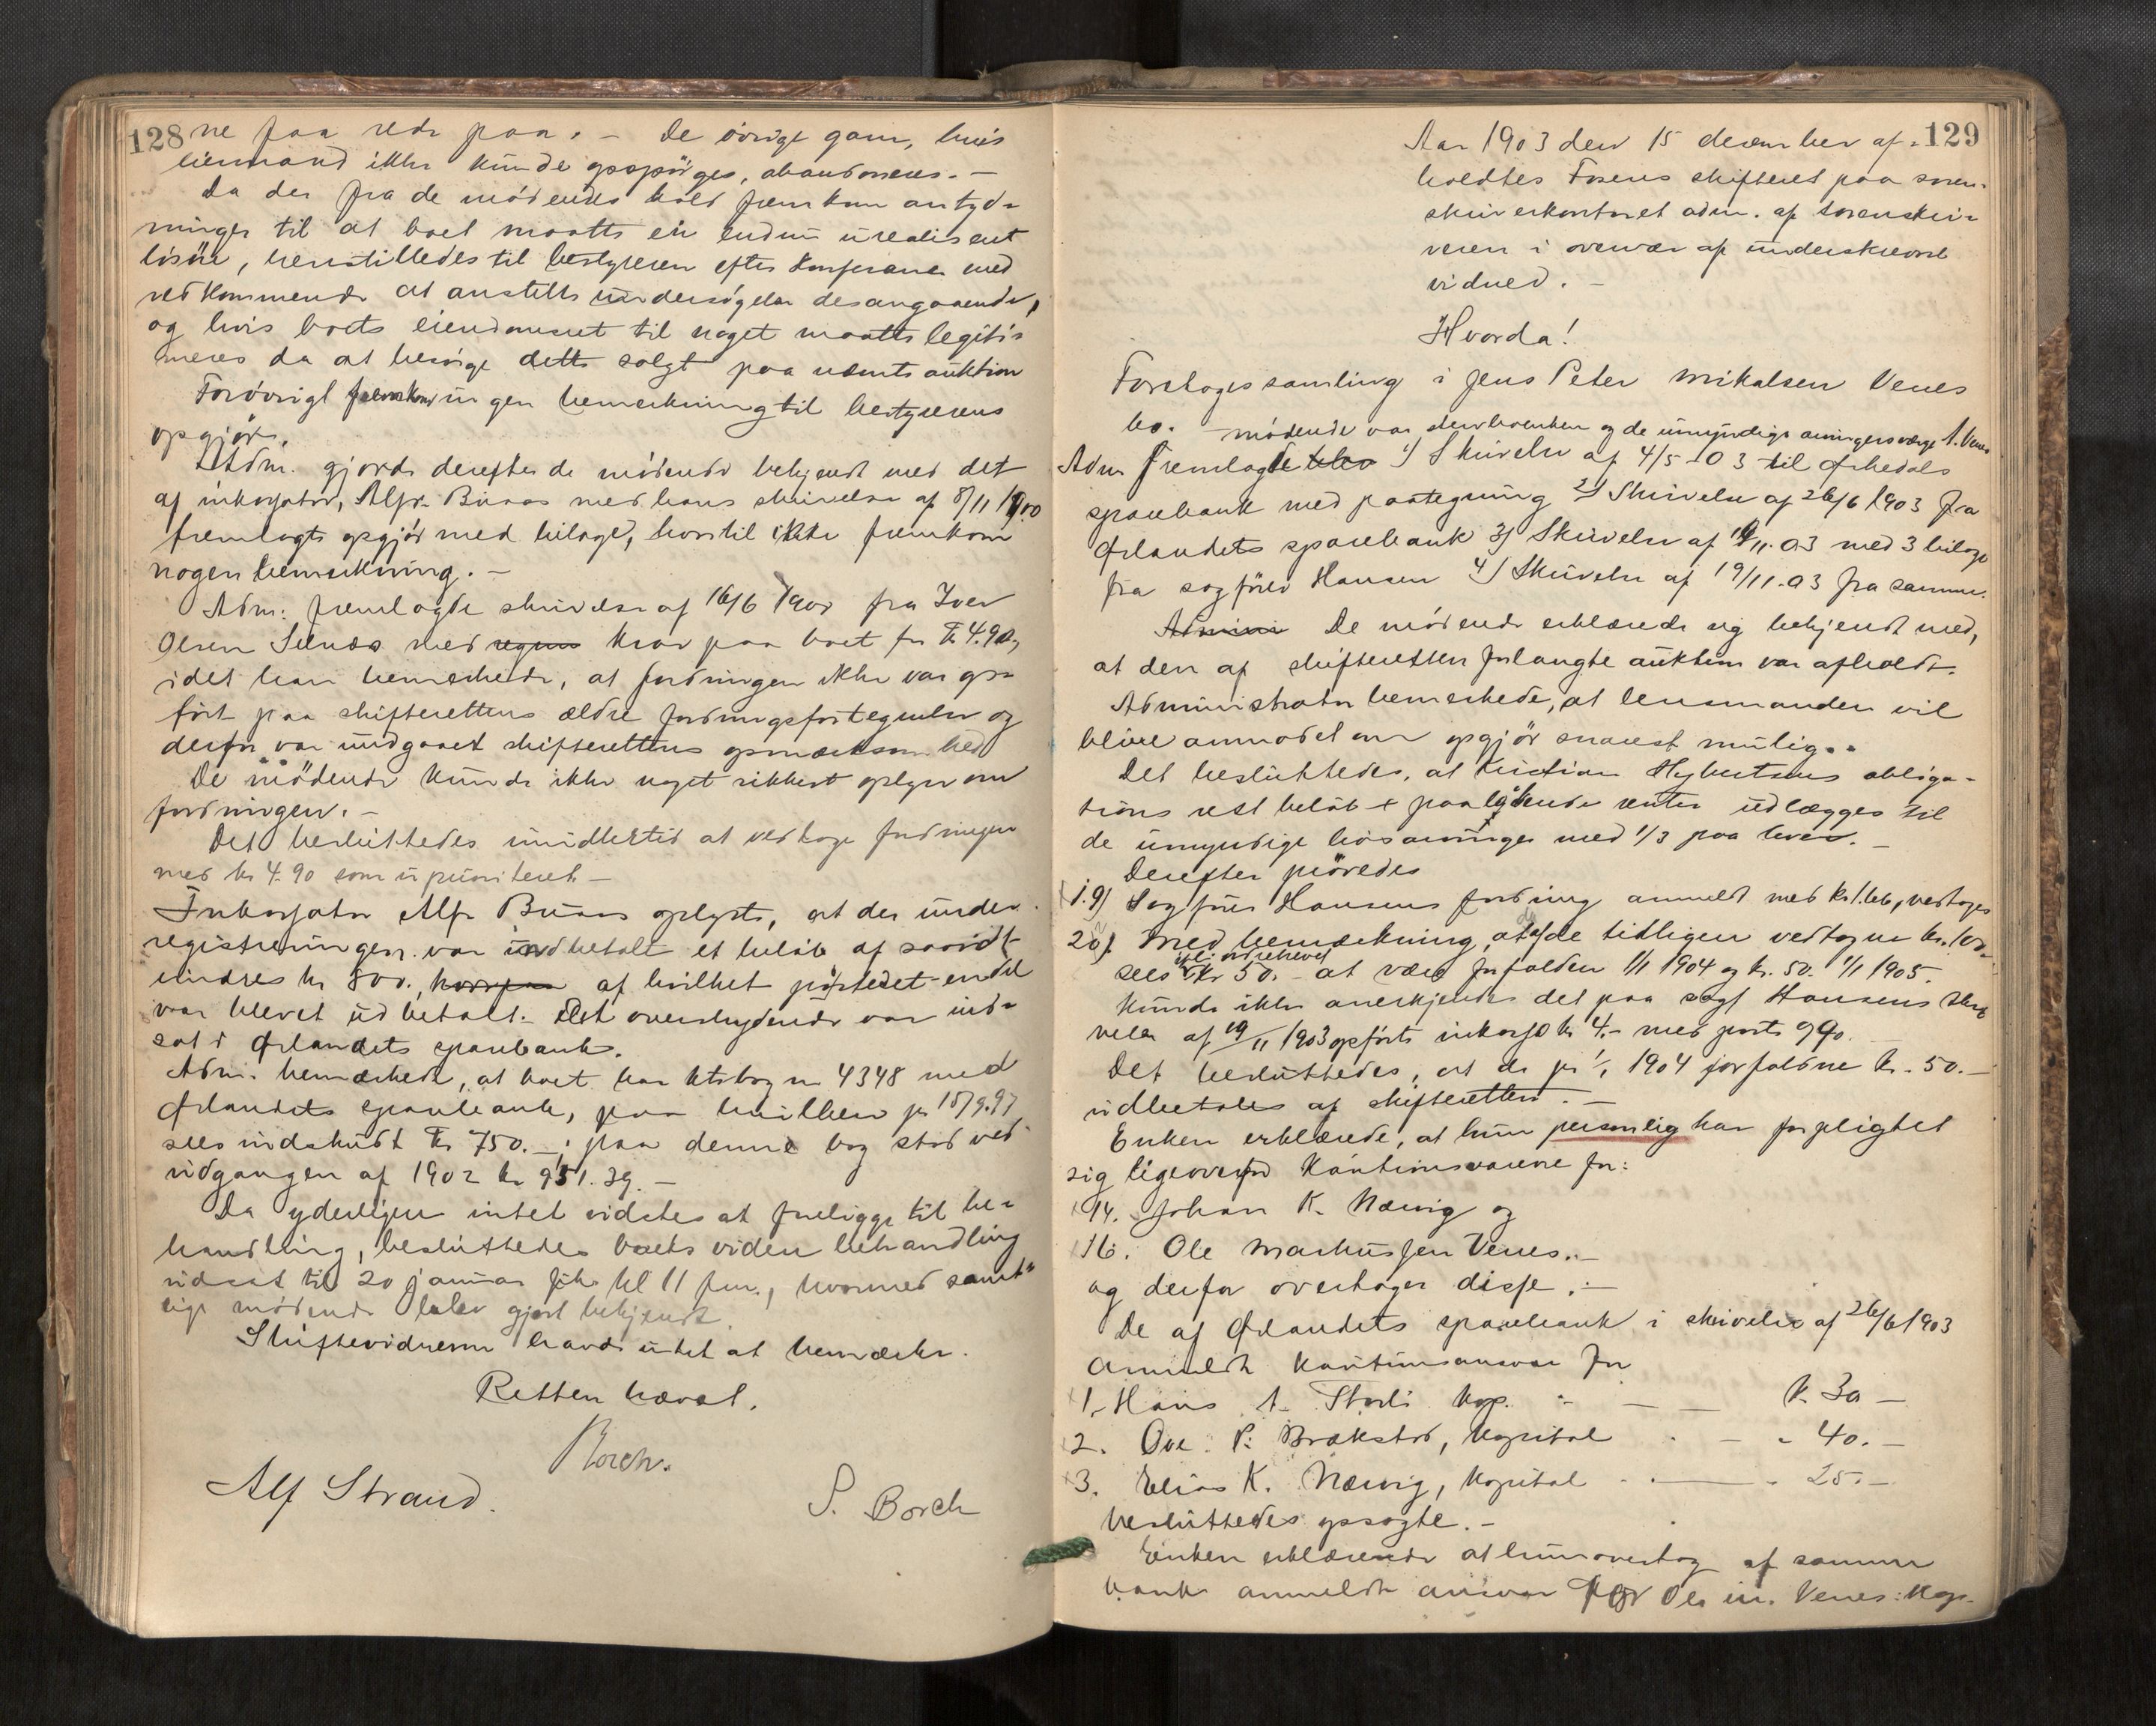 128
ne faa rede paa. - De övrige garn, hvis
eiermand ikke kunde opspörges, abandoneres. -
Da der fra de mödendes hold fremkom antyd-
ninger til at boet maatte eie endnu urealiseret
lösöre, henstilledes til bestyreren efter konferance med
vedkommende at anstille undersögelse desangaaende,
og hvis boets eiendomsret til noget maatte legiti-
meres da at besörge dette solgt paa nævnte auktion
Forövrigt fremkom ingen bemerkning til bestyrerens
opgjör.
Adm. gjorde derefter de mödende bekjendt med det
af inkassator, Alfr. Buaas med hans skrivelse af 8/11 1900
fremlagte opgjör med bilage, hvortil ikke fremkom
nogen bemerkning. -
Adm. fremlagde skrivelse af 16/6 190 fra Iver
Olsen Selnæs med krav paa boet for kr 4.90,
idet han bemerkede, at fordringen ikke var op-
fört paa skifterettens ældre fordringsfortegnelse og
derfor var undgaaet skifterettens opmærksomhed
De mödende kunde ikke noget sikkert oplyse om
fordringen. -
Det besluttedes imidlertid at vedtage fordringen
med kr 4.90 som uprioriteret -
Inkassator Alfr Buaas oplyste, at der under
registreringen var indbetalt et belöb af saavidt
erindres kr 800., af hvilket paastedet endel
var blevet udbetalt. Det overskydende var ind-
sat i Ørlandets sparebank.
Adm. bemærkede, at boet har ktrbog no 4348 med
Ørlandets sparebank, paa hvilken pr 18/9.97
sees indskudt kr 750. -; paa denne bog stod ved
udgangen af 1902 kr 951.39. -
Da yderligere intet vidstes at foreligge til be-
handling, besluttedes boets videre behandling
udsat til 20 januar fök kl 11 fm., hvormed samt-
lige mödende blev gjort bekjendt.
Skiftevidnerne havde intet at bemærke.
Retten hævet.
Borch.
Alf Strand.
S. Borch
129
Aar 1903 den 15 december af-
holdtes Fosens skifteret paa soren-
skriverkontoret adm. af sorenskri-
veren i overvær af underskrevne
vidner. -
Hvorda!
Foretoges samling i Jens Peter Mikalsen Venes
bo. - mödende var sterboenken og de umyndige arvingers værge A. Venes
Adm fremlagde blev 1) Skrivelse af 4/5-03 til Ørkedals
sparebank med paategning 2) Skrivelse af 26/6 1903 fra
Ørlandets sparebank 3) Skrivelse af 19/11.03 med 3 bilage
fra sagförer Hansen 4) Skrivelse af 19/11.03 fra samme.
Admini De mödende erklærede sig bekjendt med,
at den af skifteretten forlangte auktion var afholdt.
Administrator bemerkede, at lensmanden vil
blive anmodet om opgjör snarest mulig. -
Det besluttedes, at Kristian Hybertsens obliga-
tions rest belöb + paalöbende renter udlægges til
de umyndige livsarvinger med 1/3 paa hver. -
Derefter prövedes
19) Sagförer Hansens fordring anmeldt med kr 1.66, vedtoges
20) Med bemærkning, at af de tidligere vedtagne kr. 100.-
sees kr 50. - at være forfalden 1/1 1904 og kr. 50. 1/1 1905.
kunde ikke anerkjendes det paa sagf Hansens skri
velse af 19/11 1903 opförte inkasso kr 4. - med porto 99o.
Det besluttedes, at de pr 1/1 1904 forfaldne kr. 50. -
udbetales af skifteretten. -
Enken erklærede, at hun personlig har forpligtet
sig ligeoverfor kautionsvarerne for:
14. Johan K. Nærvig og
16. Ole Markussen Venes. -
og derfor overtager disse. -
De af Ørlandets sparebank i skrivelse af 26/6 1903
anmeldte kautionsansvar for
1. Hans A. Storli kap. - - - k. 30 -
2. Ove P. Brækstad, kapital - - " 40. -
3. Elias K. Nærvig, kapital - - " 25. -
besluttedes opsagte. -
Enken erklærede at hun overtog af samme
bank anmeldte ansvar for Ole M. Venes: kap.